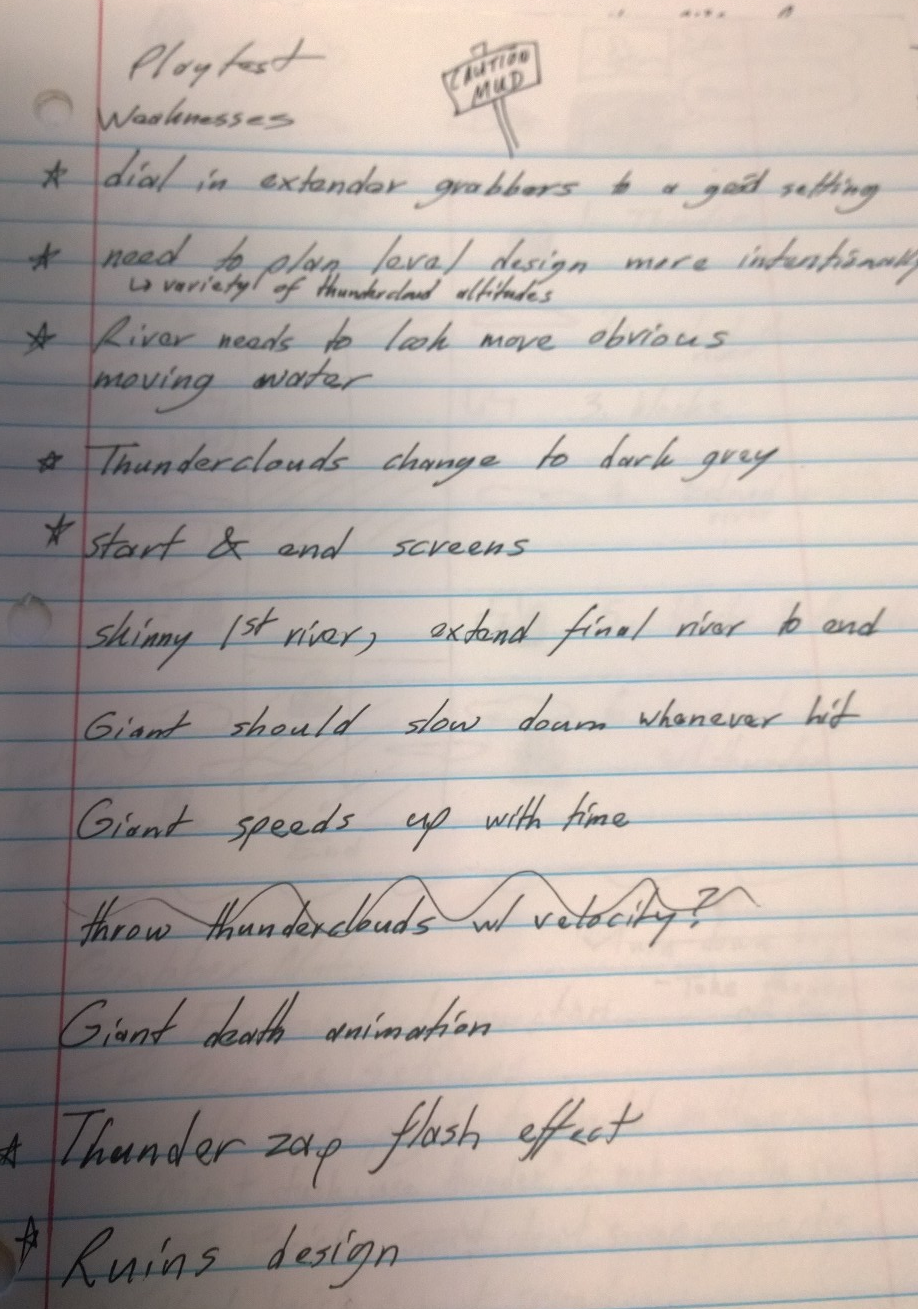 Playtest
Weaknesses
CAUTION
MUD
☆ dial in extender grabbers to a good setting
☆ need to plan level design more intentionally
↳ variety of thundercloud altitudes
☆ River needs to look more obvious
moving water
☆ Thunderclouds change to dark grey
☆ start & end screens
skinny 1st river, extend final river to end
Giant should slow down whenever hit
Giant speeds up with time
throw thunderclouds w/ velocity?
Giant death animation
☆ Thunder zap flash effect
☆ Ruins design